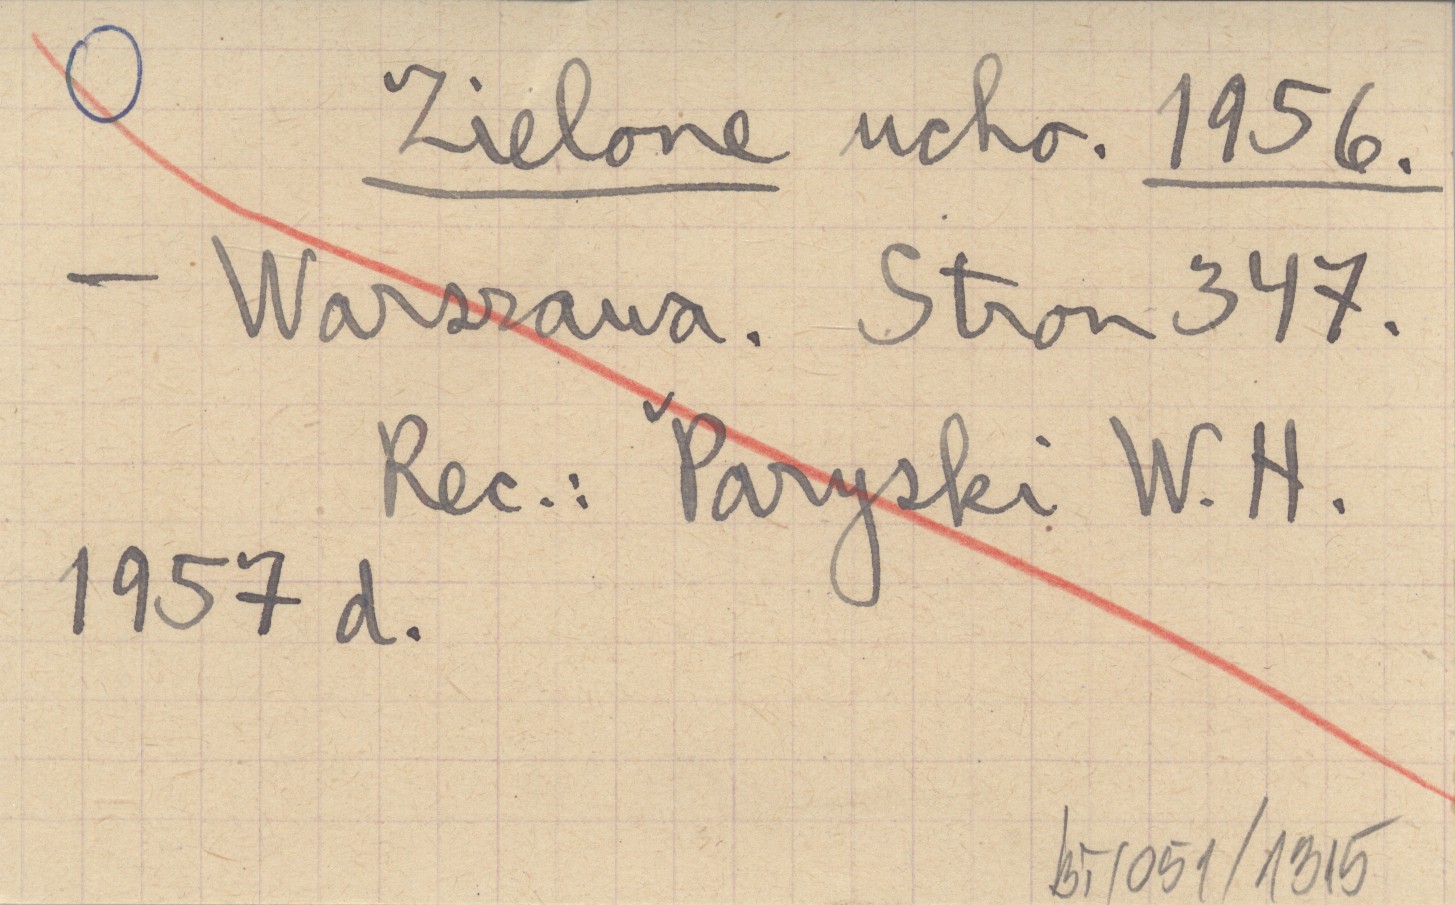 Zielone ucho. 1956.
— Warszawa. Stron 347.
Rec.: Paryski W. H.
1957 d.
BT/051/1315